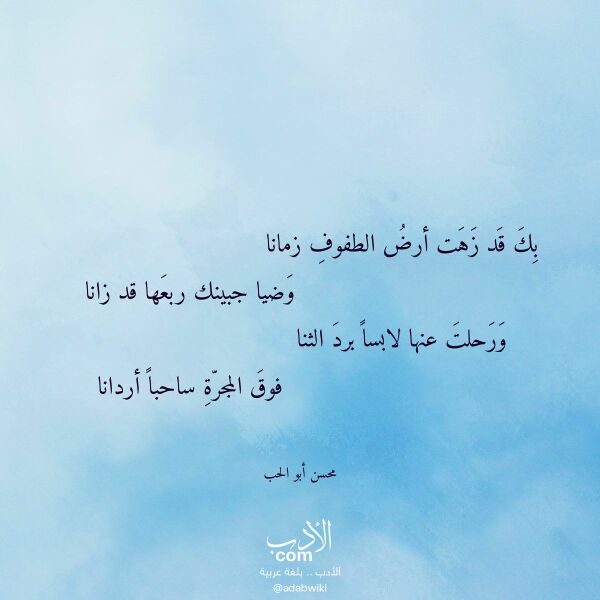 بِكَ قَد زَهَت أرضُ الطفوفِ زمانا
وَضيا جبينك ربعَها قد زانا
وَرَحلتَ عنها لابساً بردَ الثنا
فوقَ المجرّةِ ساحباً أردانا
محسن أبو الحب
الأدب
com
الأدب .. بلغة عربية
@adabwiki